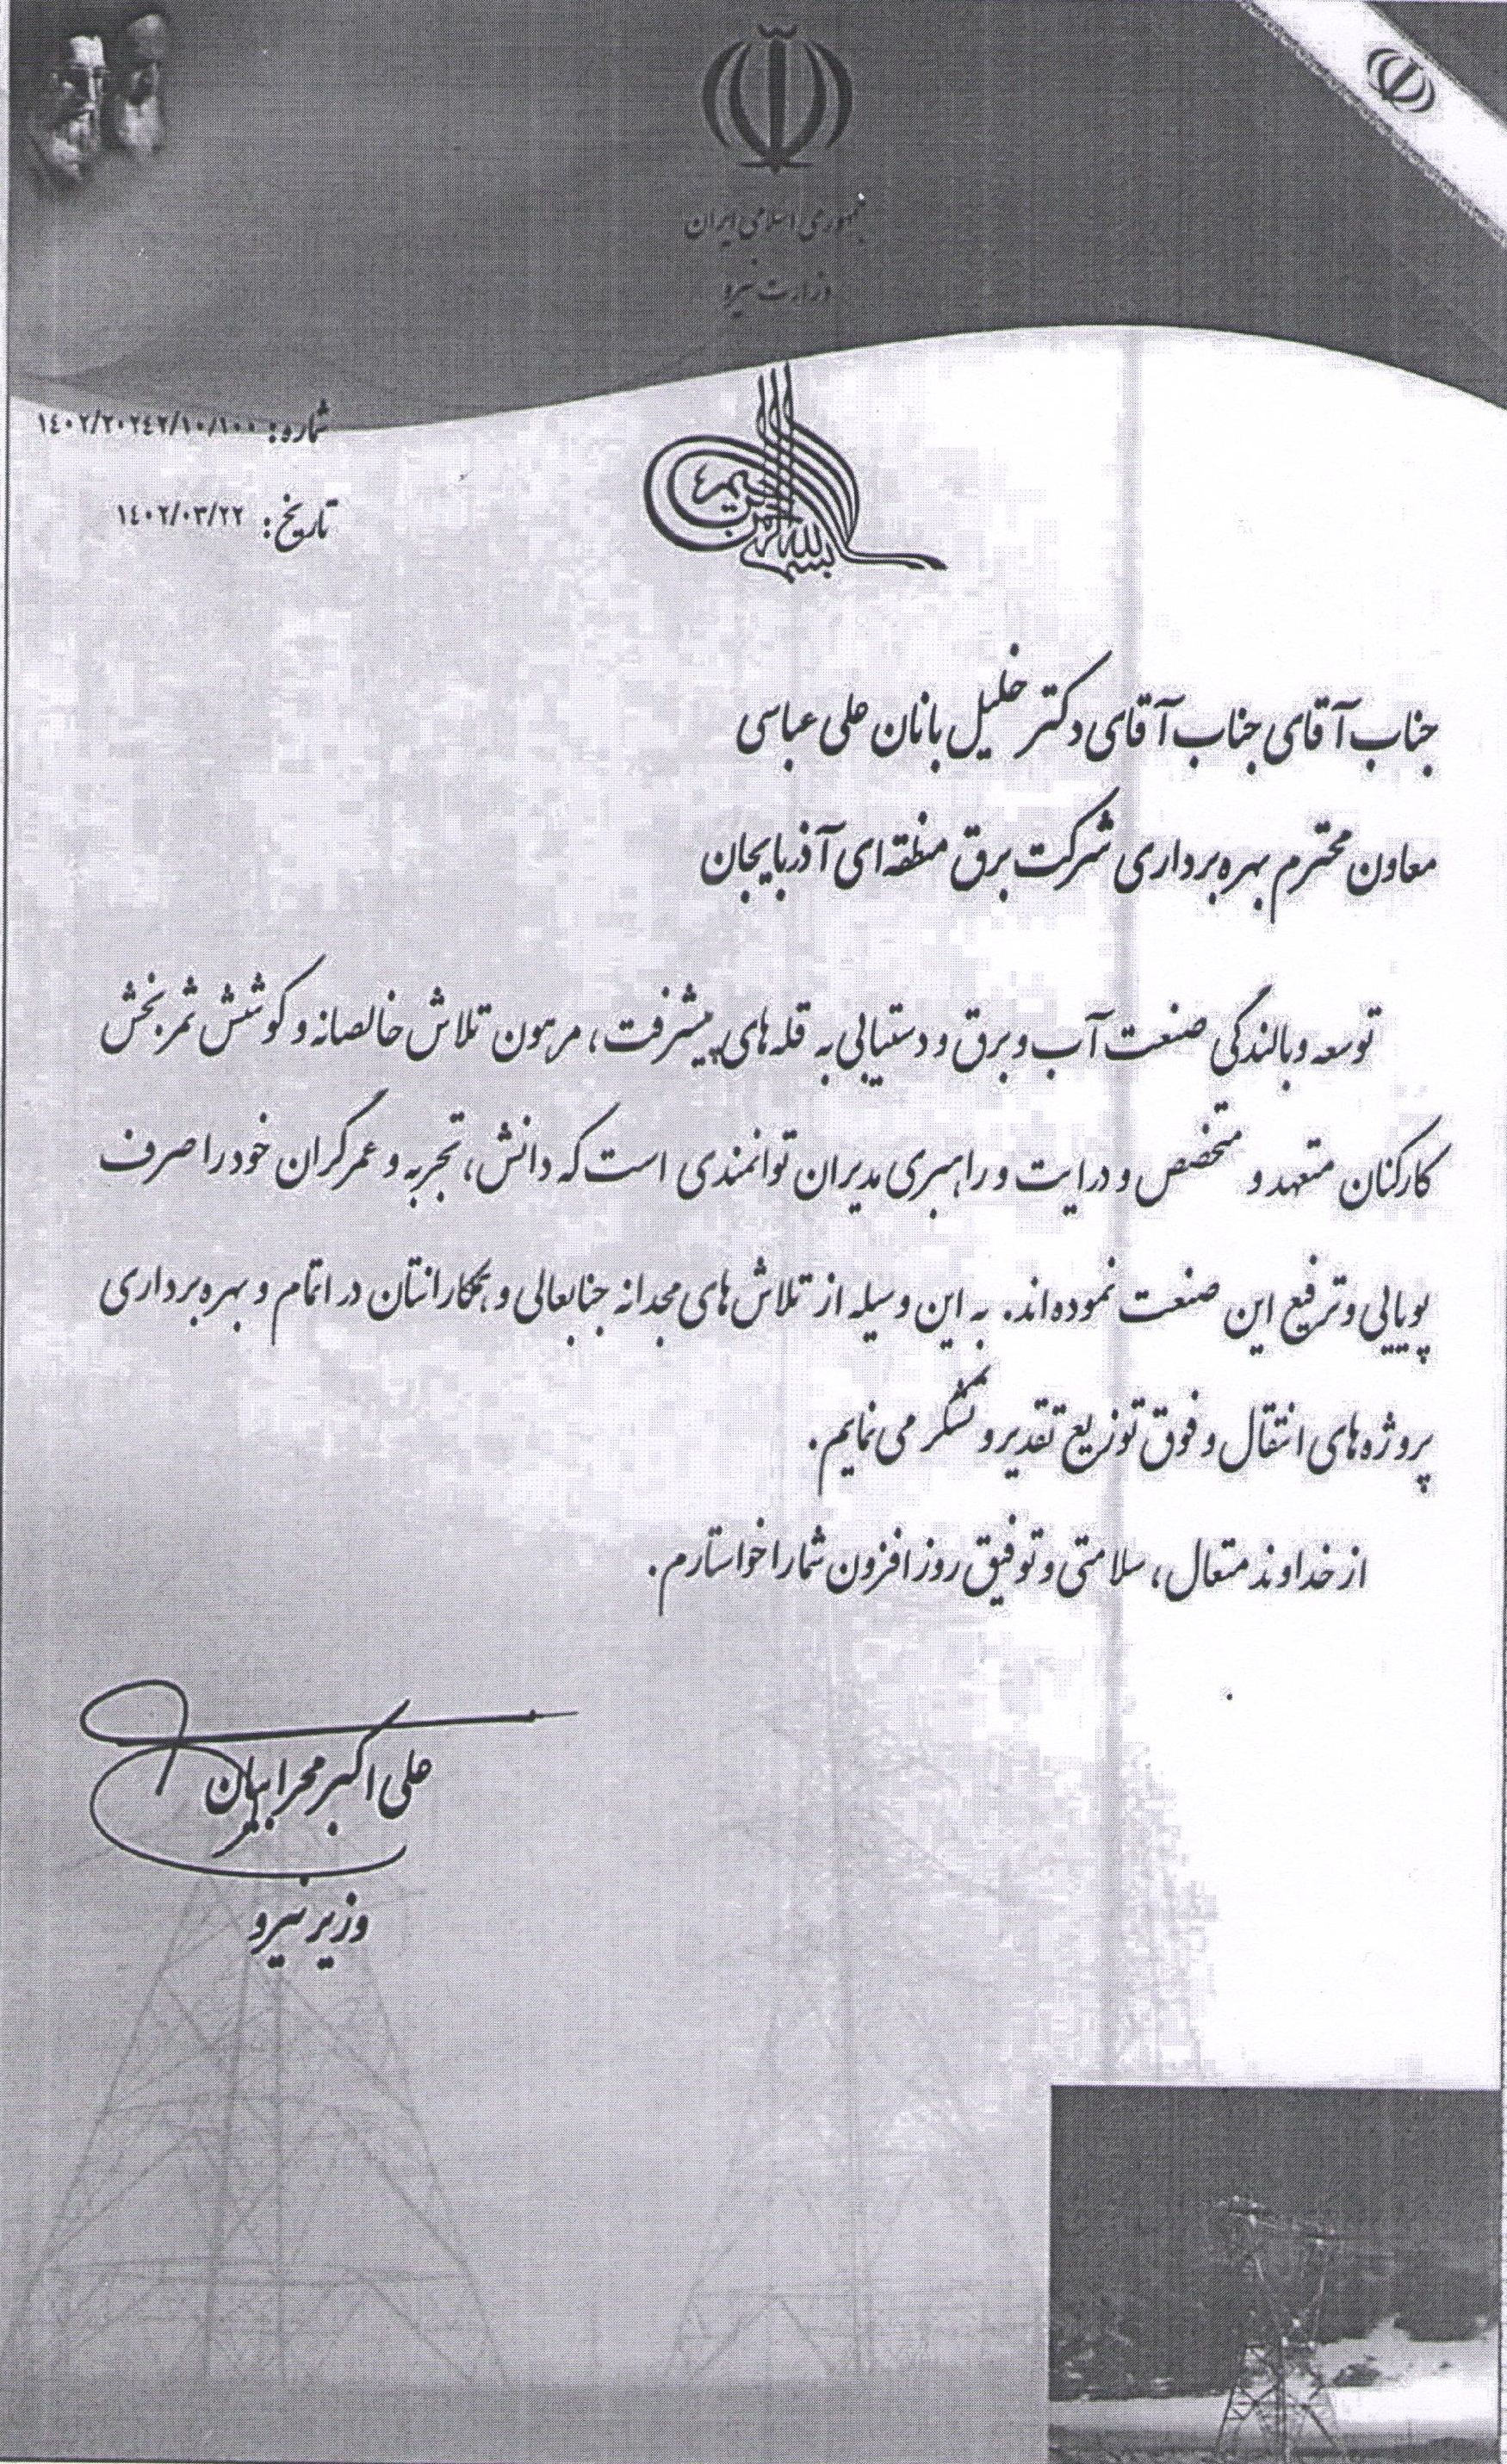 جمهوری اسلامی ایران
وزارت نیرو
شماره: ۱۴۰۲/۲۰۲۴۲/۱۰/۱۰۰
تاریخ: ۱۴۰۲/۰۳/۲۲
بسم الله الرحمن الرحیم
جناب آقای جناب آقای دکتر خلیل بانان علی عباسی
معاون محترم بهره‌برداری شرکت برق منطقه‌ای آذربایجان
توسعه و بالندگی صنعت آب و برق و دستیابی به قله‌های پیشرفت، مرهون تلاش خالصانه و کوشش ثمربخش
کارکنان متعهد و متخصص و درایت و راهبری مدیران توانمندی است که دانش، تجربه و عمر گران خود را صرف
پویایی و ترفیع این صنعت نموده‌اند. به این وسیله از تلاش‌های مجدانه جنابعالی و همکارانتان در اتمام و بهره‌برداری
پروژه‌های انتقال و فوق توزیع تقدیر و تشکر می‌نمایم.
از خداوند متعال، سلامتی و توفیق روزافزون شما را خواستارم.
علی اکبر محرابیان
وزیر نیرو